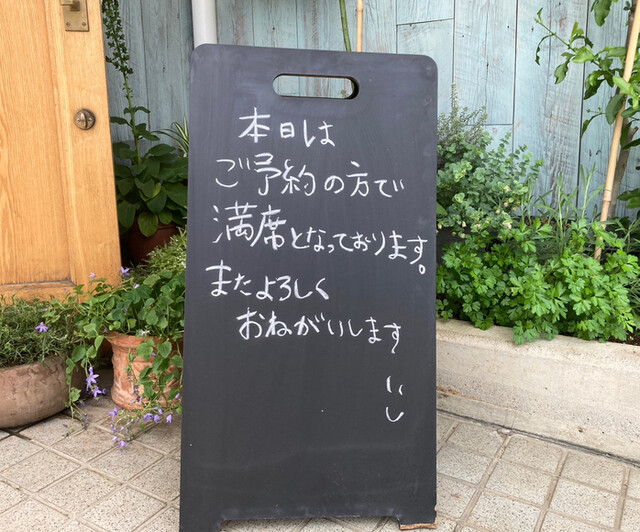 本日は
ご予約の方で
満席となっております。
またよろしく
おねがいします